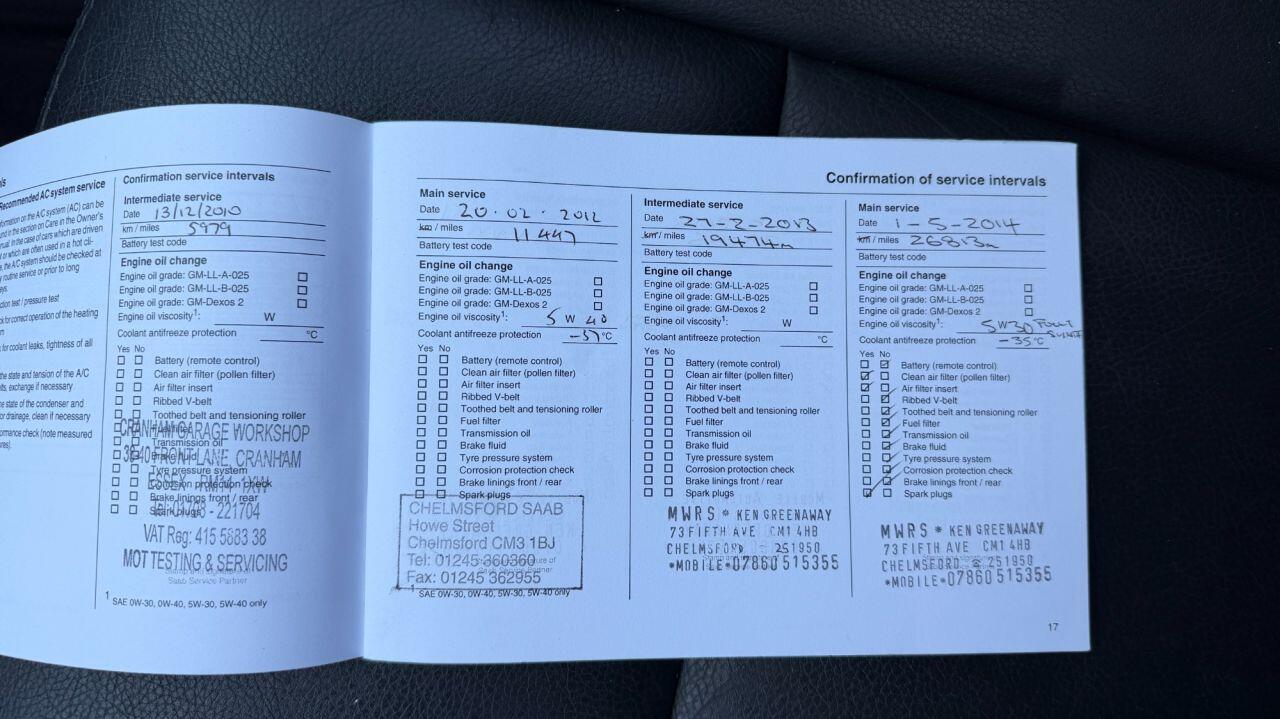 is
Recommended AC system service
formation on the A/C system (AC) can be
und in the section on Care in the Owner's
nual. In the case of cars which are driven
t or which are often used in a hot cli-
e, the A/C system should be checked at
y routine service or prior to long
eys.
ction test / pressure test
ck for correct operation of the heating
for coolant leaks, tightness of all
the state and tension of the A/C
elts, exchange if necessary
he state of the condenser and
or drainage, clean if necessary
ormance check (note measured
res).
Confirmation service intervals
Intermediate service
Date 13/12/2010
km / miles 5979
Battery test code
Engine oil change
Engine oil grade: GM-LL-A-025
Engine oil grade: GM-LL-B-025
Engine oil grade: GM-Dexos 2
Engine oil viscosity1: W
Coolant antifreeze protection °C
Yes No
Battery (remote control)
Clean air filter (pollen filter)
Air filter insert
Ribbed V-belt
Toothed belt and tensioning roller
Fuel filter
Transmission oil
Brake fluid
Tyre pressure system
Corrosion protection check
Brake linings front / rear
Spark plugs
CRANHAM GARAGE WORKSHOP
FRONT LANE, CRANHAM
ESSEX RM14 1XW
- 221704
VAT Reg: 415 5883 38
MOT TESTING & SERVICING
Saab Service Partner
1 SAE 0W-30, 0W-40, 5W-30, 5W-40 only
Confirmation of service intervals
Main service
Date 20.02.2012
km / miles 11447
Battery test code
Engine oil change
Engine oil grade: GM-LL-A-025
Engine oil grade: GM-LL-B-025
Engine oil grade: GM-Dexos 2
Engine oil viscosity1: 5 W 40
Coolant antifreeze protection -37°C
Yes No
Battery (remote control)
Clean air filter (pollen filter)
Air filter insert
Ribbed V-belt
Toothed belt and tensioning roller
Fuel filter
Transmission oil
Brake fluid
Tyre pressure system
Corrosion protection check
Brake linings front / rear
Spark plugs
CHELMSFORD SAAB
Howe Street
Chelmsford CM3 1BJ
Tel: 01245 360360
Fax: 01245 362955
1 SAE 0W-30, 0W-40, 5W-30, 5W-40 only
Intermediate service
Date 27-2-2013
km / miles 19474m
Battery test code
Engine oil change
Engine oil grade: GM-LL-A-025
Engine oil grade: GM-LL-B-025
Engine oil grade: GM-Dexos 2
Engine oil viscosity1: W
Coolant antifreeze protection °C
Yes No
Battery (remote control)
Clean air filter (pollen filter)
Air filter insert
Ribbed V-belt
Toothed belt and tensioning roller
Fuel filter
Transmission oil
Brake fluid
Tyre pressure system
Corrosion protection check
Brake linings front / rear
Spark plugs
MWRS * KEN GREENAWAY
73 FIFTH AVE CM1 4HB
CHELMSFORD 251950
*MOBILE*07860 515355
Main service
Date 1-5-2014
km / miles 26813m
Battery test code
Engine oil change
Engine oil grade: GM-LL-A-025
Engine oil grade: GM-LL-B-025
Engine oil grade: GM-Dexos 2
Engine oil viscosity1: 5W30 FULLY
Coolant antifreeze protection -35°C
Yes No
Battery (remote control)
Clean air filter (pollen filter)
Air filter insert
Ribbed V-belt
Toothed belt and tensioning roller
Fuel filter
Transmission oil
Brake fluid
Tyre pressure system
Corrosion protection check
Brake linings front / rear
Spark plugs
MWRS * KEN GREENAWAY
73 FIFTH AVE CM1 4HB
CHELMSFORD ☎ 251950
*MOBILE*07860 515355
17